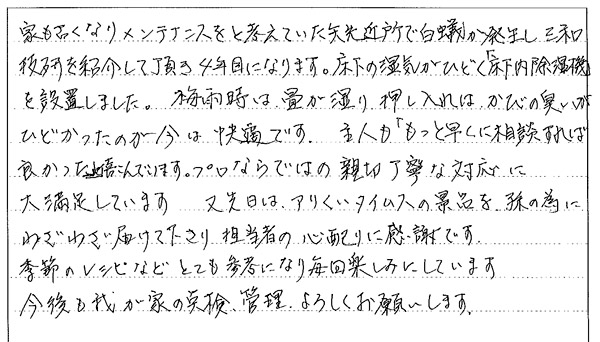 家も古くなりメンテナンスをと考えていた矢先近所で白蟻が発生し三和
技研を紹介して頂き4年目になります。床下の湿気がひどく「床下内除湿機
を設置しました。 梅雨時は畳が湿り押し入れはかびの臭いが
ひどかったのが今は快適です。 主人も「もっと早くに相談すれば
良かったと喜んでいます。プロならではの親切丁寧な対応に
大満足しています 又先日は、アリくいタイムスの景品を孫の為に
わざわざ届けて下さり担当者の心配りに感謝です。
季節のレシピなどとても参考になり毎回楽しみにしています
今後も我が家の点検、管理、よろしくお願いします。